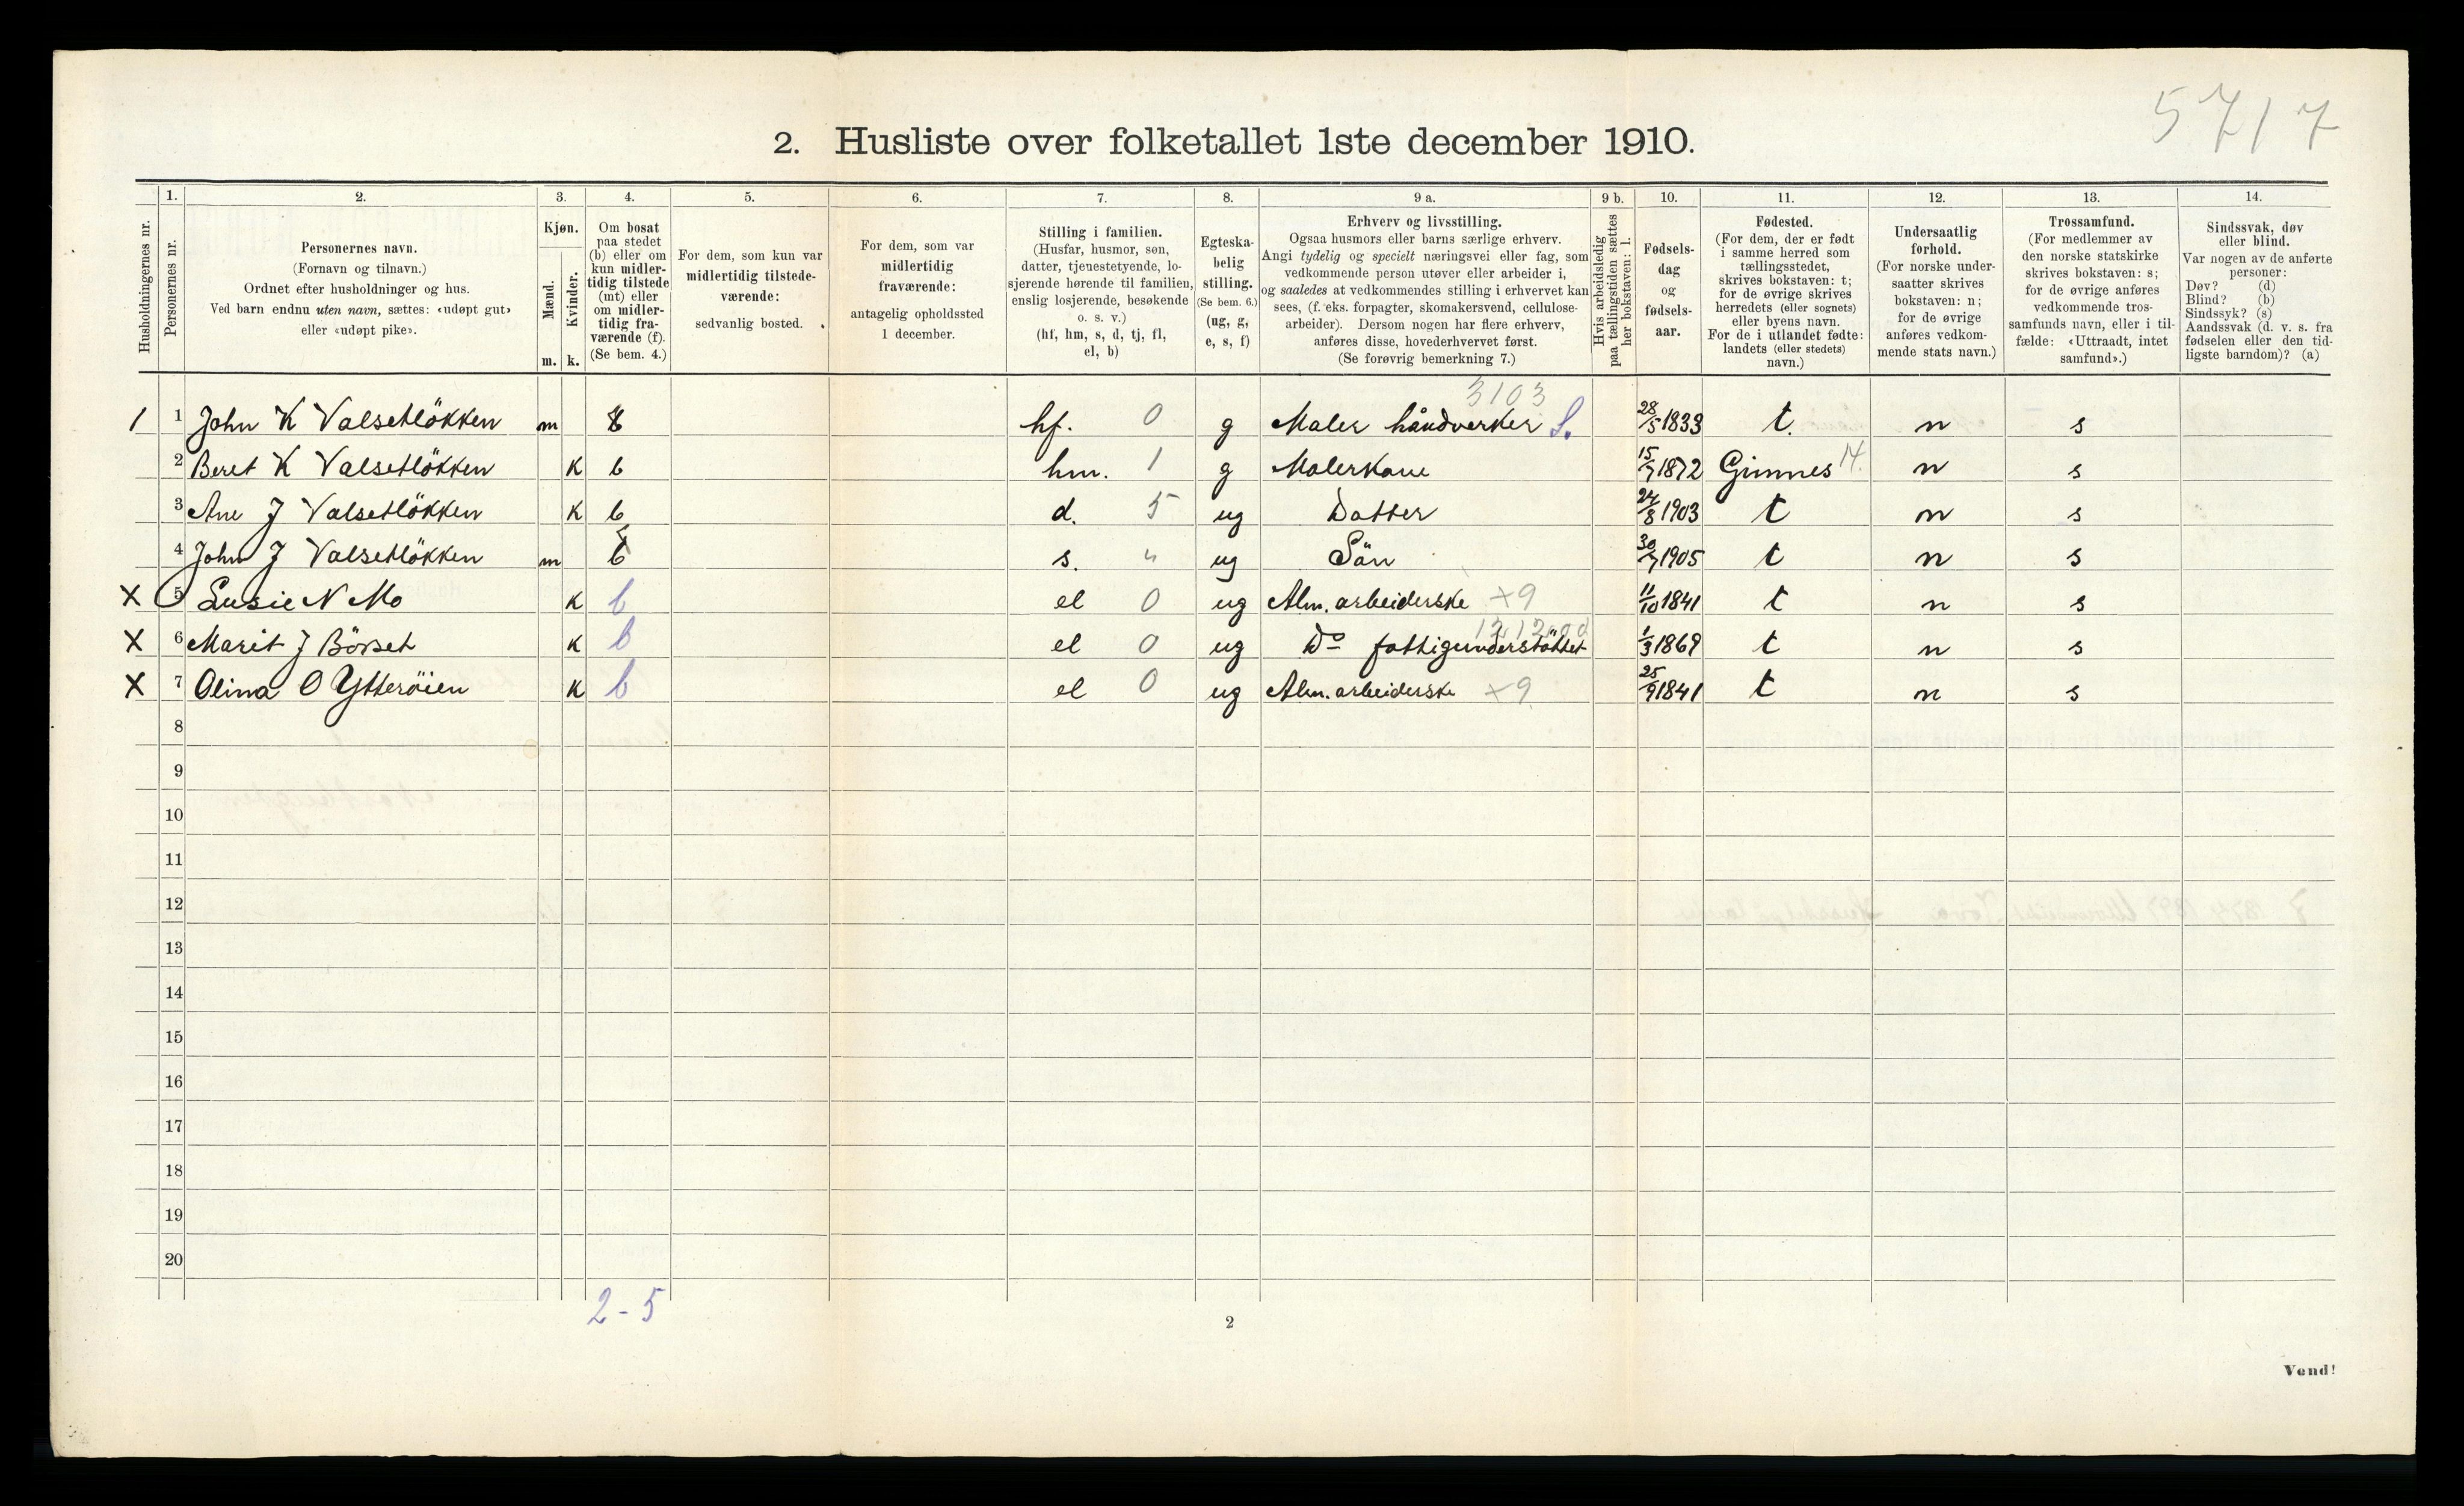 5717
2. Husliste over folketallet 1ste december 1910.
Husholdningernes nr.
1.
Personernes nr.
2.
Personernes navn.
(Fornavn og tilnavn.)
Ordnet efter husholdninger og hus.
Ved barn endnu uten navn, sættes: «udøpt gut»
eller «udøpt pike».
3.
Kjøn.
Mænd.
m.
Kvinder.
k.
4.
Om bosat
paa stedet
(b) eller om
kun midler-
tidig tilstede
(mt) eller
om midler-
tidig fra-
værende (f).
(Se bem. 4.)
5.
For dem, som kun var
midlertidig tilstede-
værende:
sedvanlig bosted.
6.
For dem, som var
midlertidig
fraværende:
antagelig opholdssted
1 december.
7.
Stilling i familien.
(Husfar, husmor, søn,
datter, tjenestetyende, lo-
sjerende hørende til familien,
enslig losjerende, besøkende
o. s. v.)
(hf, hm, s, d, tj, fl,
el, b)
8.
Egteska-
belig
stilling.
(Se bem. 6.)
(ug, g,
e, s, f)
9 a.
Erhverv og livsstilling.
Ogsaa husmors eller barns særlige erhverv.
Angi tydelig og specielt næringsvei eller fag, som
vedkommende person utøver eller arbeider i,
og saaledes at vedkommendes stilling i erhvervet kan
sees, (f. eks. forpagter, skomakersvend, cellulose-
arbeider). Dersom nogen har flere erhverv,
anføres disse, hovederhvervet først.
(Se forøvrig bemerkning 7.)
9 b.
Hvis arbeidsledig
paa tællingstiden sættes
her bokstaven: l.
10.
Fødsels-
dag
og
fødsels-
aar.
11.
Fødested.
(For dem, der er født
i samme herred som
tællingsstedet,
skrives bokstaven: t;
for de øvrige skrives
herredets (eller sognets)
eller byens navn.
For de i utlandet fødte:
landets (eller stedets)
navn.)
12.
Undersaatlig
forhold.
(For norske under-
saatter skrives
bokstaven: n;
for de øvrige
anføres vedkom-
mende stats navn.)
13.
Trossamfund.
(For medlemmer av
den norske statskirke
skrives bokstaven: s;
for de øvrige anføres
vedkommende tros-
samfunds navn, eller i til-
fælde: «Uttraadt, intet
samfund».)
14.
Sindssvak, døv
eller blind.
Var nogen av de anførte
personer:
Døv? (d)
Blind? (b)
Sindssyk? (s)
Aandssvak (d. v. s. fra
fødselen eller den tid-
ligste barndom)? (a)
3103
1 1 John K Valsetløkken m b hf. 0 g Maler håndverker S. 28/5 1833 t. n s
2 Beret K Valsetløkken K b hm. 1 g Malerkone 15/7 1872 Gimnes 14. n s
3 Ane J Valsetløkken K b d. 5 ug Datter 24/8 1903 t n s
4 John J Valsetløkken m b s. " ug Sön 30/7 1905 t n s
X 5 Lusie N Mo K b el 0 ug Alm. arbeiderske +9 11/10 1841 t n s
X 6 Marit J Börset K b el 0 ug Do fattigunderstöttet 1/3 1869 t n s
X 7 Olina O Ytteröien K b el 0 ug Alm. arbeiderske +9. 25/9 1841 t n s
8
9
10
11
12
13
14
15
16
17
18
19
20
2-5
2
Vend!